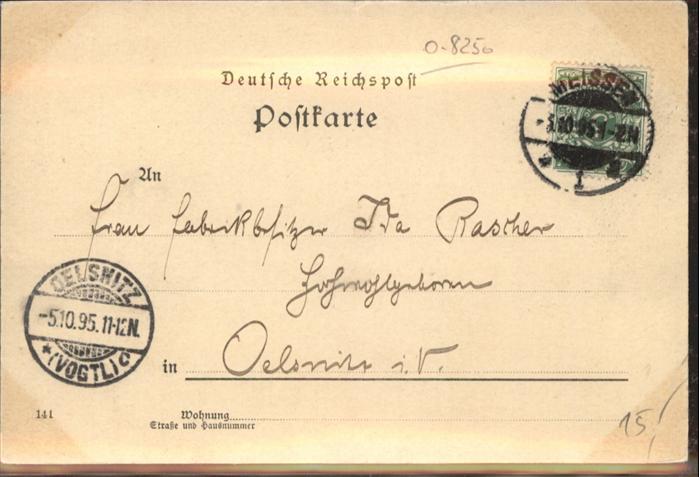 O-8250
Deutsche Reichspost
Postkarte
MEISSEN
5.10.95.1-2N.
1
An
Frau Fabrikbesitzer Ida Rascher
Hochwohlgeboren
OELSNITZ
-5.10.95.11-12N.
(VOGTL) c
in Oelsnitz i. V.
141
Wohnung
Straße und Hausnummer
15,